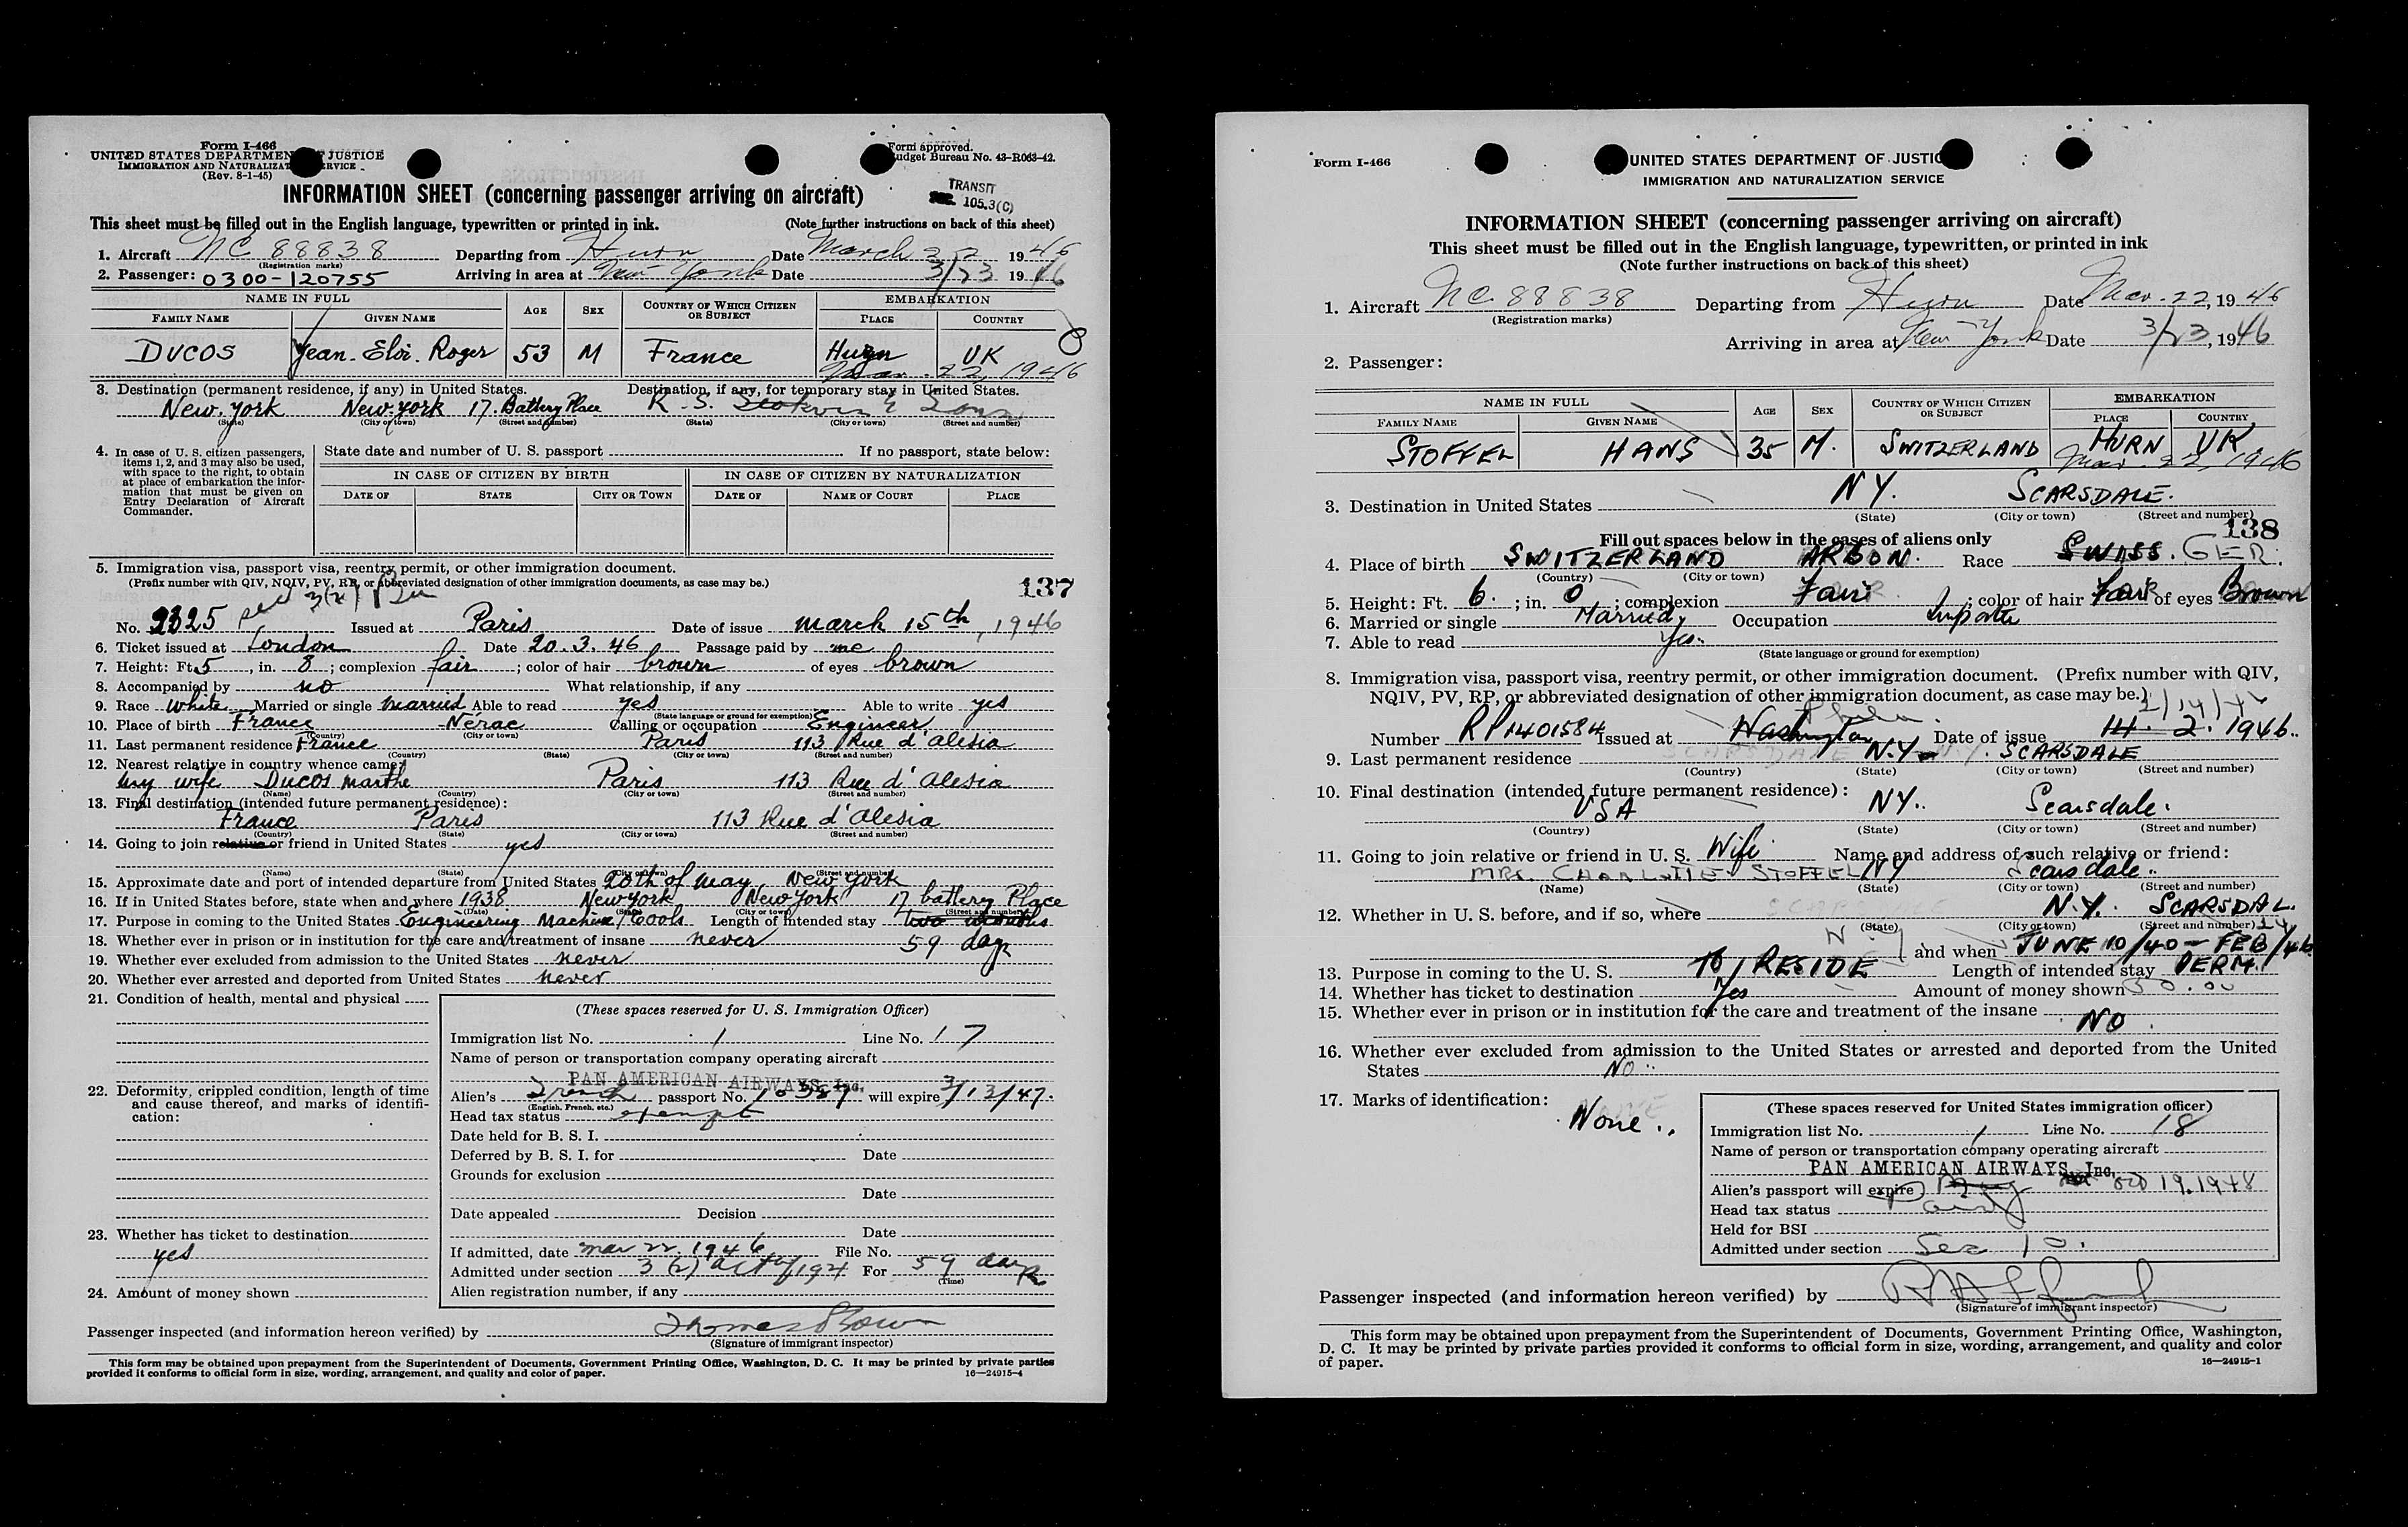 Form I-466
UNITED STATES DEPARTMENT OF JUSTICE
IMMIGRATION AND NATURALIZATION SERVICE
(Rev. 8-1-45)
Form approved.
Budget Bureau No. 43-R063-42.
INFORMATION SHEET (concerning passenger arriving on aircraft)
TRANSIT
SEC. 105.3(C)
This sheet must be filled out in the English language, typewritten or printed in ink. (Note further instructions on back of this sheet)
1. Aircraft NC 88838 Departing from Hurn Date March 22 1946
(Registration marks)
2. Passenger: 0300-120755 Arriving in area at New York Date 3/23 1946
NAME IN FULL AGE SEX COUNTRY OF WHICH CITIZEN OR SUBJECT EMBARKATION
FAMILY NAME GIVEN NAME PLACE COUNTRY
DUCOS Jean-Eloi-Roger 53 M France Hurn UK
Mar. 22, 1946
3. Destination (permanent residence, if any) in United States. Destination, if any, for temporary stay in United States.
New-York New York 17. Battery Place R. S. & Sons
(State) (City or town) (Street and number) (State) (City or town) (Street and number)
4. In case of U. S. citizen passengers, items 1, 2, and 3 may also be used, with space to the right, to obtain at place of embarkation the information that must be given on Entry Declaration of Aircraft Commander.
State date and number of U. S. passport If no passport, state below:
IN CASE OF CITIZEN BY BIRTH IN CASE OF CITIZEN BY NATURALIZATION
DATE OF STATE CITY OR TOWN DATE OF NAME OF COURT PLACE
5. Immigration visa, passport visa, reentry permit, or other immigration document.
(Prefix number with QIV, NQIV, PV, RP, or abbreviated designation of other immigration documents, as case may be.)
137
3(2)
No. 2325 Issued at Paris Date of issue march 15th, 1946
6. Ticket issued at London Date 20.3.46 Passage paid by me
7. Height: Ft. 5, in. 8; complexion fair; color of hair brown of eyes brown
8. Accompanied by no What relationship, if any
9. Race white Married or single married Able to read yes Able to write yes
(State language or ground for exemption)
10. Place of birth France Nérac Calling or occupation Engineer
(Country) (City or town)
11. Last permanent residence France Paris 113 Rue d'Alesia
(Country) (State) (City or town) (Street and number)
12. Nearest relative in country whence came:
my wife Ducos marthe Paris 113 Rue d'Alesia
(Name) (Country) (City or town) (Street and number)
13. Final destination (intended future permanent residence):
France Paris 113 Rue d'Alesia
(Country) (State) (City or town) (Street and number)
14. Going to join relative or friend in United States yes
(Name) (State) (City or town) (Street and number)
15. Approximate date and port of intended departure from United States 20th of May New York
16. If in United States before, state when and where 1938 New York New York 17 battery Place
(Date) (State) (City or town) (Street and number)
17. Purpose in coming to the United States Engineering Machine Tools Length of intended stay two months
18. Whether ever in prison or in institution for the care and treatment of insane never 59 days
19. Whether ever excluded from admission to the United States never
20. Whether ever arrested and deported from United States never
21. Condition of health, mental and physical
(These spaces reserved for U. S. Immigration Officer)
Immigration list No. 1 Line No. 17
Name of person or transportation company operating aircraft
PAN AMERICAN AIRWAYS, Inc.
22. Deformity, crippled condition, length of time and cause thereof, and marks of identification:
Alien's French passport No. 10387 will expire 3/13/47.
(English, French, etc.)
Head tax status exempt
Date held for B. S. I.
Deferred by B. S. I. for Date
Grounds for exclusion
Date
Date appealed Decision
Date
23. Whether has ticket to destination
yes
If admitted, date mar 22. 1946 File No.
Admitted under section 3 (2) act of 1924 For 59 days
(Time)
24. Amount of money shown
Alien registration number, if any
Passenger inspected (and information hereon verified) by Thomas Brown
(Signature of immigrant inspector)
This form may be obtained upon prepayment from the Superintendent of Documents, Government Printing Office, Washington, D. C. It may be printed by private parties
provided it conforms to official form in size, wording, arrangement, and quality and color of paper. 16—24915-4
Form I-466
UNITED STATES DEPARTMENT OF JUSTICE
IMMIGRATION AND NATURALIZATION SERVICE
INFORMATION SHEET (concerning passenger arriving on aircraft)
This sheet must be filled out in the English language, typewritten, or printed in ink
(Note further instructions on back of this sheet)
1. Aircraft NC. 88838 Departing from Hurn Date Mar. 22, 1946
(Registration marks)
Arriving in area at New York Date 3/23, 1946
2. Passenger:
NAME IN FULL AGE SEX COUNTRY OF WHICH CITIZEN OR SUBJECT EMBARKATION
FAMILY NAME GIVEN NAME PLACE COUNTRY
STOFFEL HANS 35 M. SWITZERLAND HURN UK
Mar. 22, 1946
3. Destination in United States NY. SCARSDALE.
(State) (City or town) (Street and number)
138
Fill out spaces below in the cases of aliens only
4. Place of birth SWITZERLAND ARBON. Race SWISS. GER.
(Country) (City or town)
5. Height: Ft. 6.; in. 0; complexion Fair; color of hair Fair of eyes Brown
6. Married or single Married Occupation Importer
7. Able to read Yes.
(State language or ground for exemption)
8. Immigration visa, passport visa, reentry permit, or other immigration document. (Prefix number with QIV,
NQIV, PV, RP, or abbreviated designation of other immigration document, as case may be.)
2/14/46
Number RP1401584 Issued at Washington Date of issue 14. 2. 1946..
9. Last permanent residence N.Y. SCARSDALE
(Country) (State) (City or town) (Street and number)
10. Final destination (intended future permanent residence):
USA NY.. Scarsdale.
(Country) (State) (City or town) (Street and number)
11. Going to join relative or friend in U. S. Wife Name and address of such relative or friend:
MRS. CHARLOTTE STOFFEL NY Scarsdale..
(Name) (State) (City or town) (Street and number)
12. Whether in U. S. before, and if so, where SCARSDALE N.Y. SCARSDAL.
(State) (City or town) (Street and number)
and when JUNE 10/40 - FEB 24/46
13. Purpose in coming to the U. S. TO RESIDE Length of intended stay PERM.
14. Whether has ticket to destination Yes Amount of money shown 50.00
15. Whether ever in prison or in institution for the care and treatment of the insane NO.
16. Whether ever excluded from admission to the United States or arrested and deported from the United
States NO..
17. Marks of identification: None..
(These spaces reserved for United States immigration officer)
Immigration list No. 1 Line No. 18
Name of person or transportation company operating aircraft
PAN AMERICAN AIRWAYS, Inc.
Alien's passport will expire 19. 1948
Head tax status
Held for BSI
Admitted under section Sec 10.
Passenger inspected (and information hereon verified) by
(Signature of immigrant inspector)
This form may be obtained upon prepayment from the Superintendent of Documents, Government Printing Office, Washington,
D. C. It may be printed by private parties provided it conforms to official form in size, wording, arrangement, and quality and color
of paper. 16—24915-1